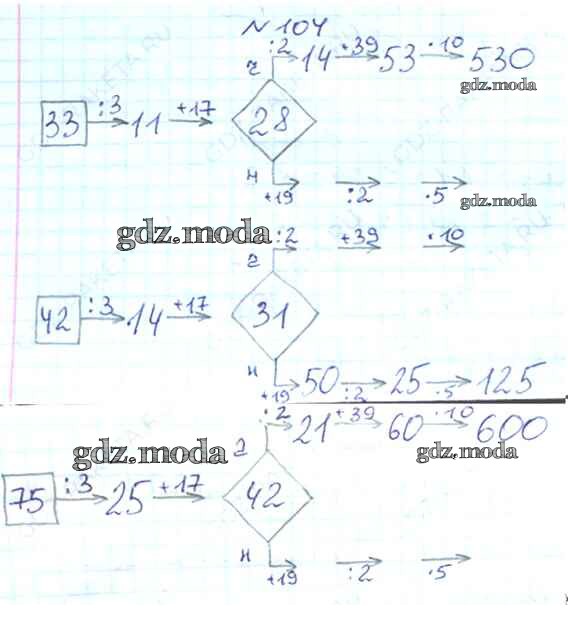 № 104
:2 14 +39 53 ·10 530
ч
gdz.moda
33 :3 11 +17 28
н
+19 :2 ·5
gdz.moda
gdz.moda
:2 +39 ·10
ч
42 :3 14 +17 31
н
+19 50 :2 25 ·5 125
:2 21 +39 60 ·10 600
gdz.moda
gdz.moda
75 :3 25 +17 42
н
+19 :2 ·5